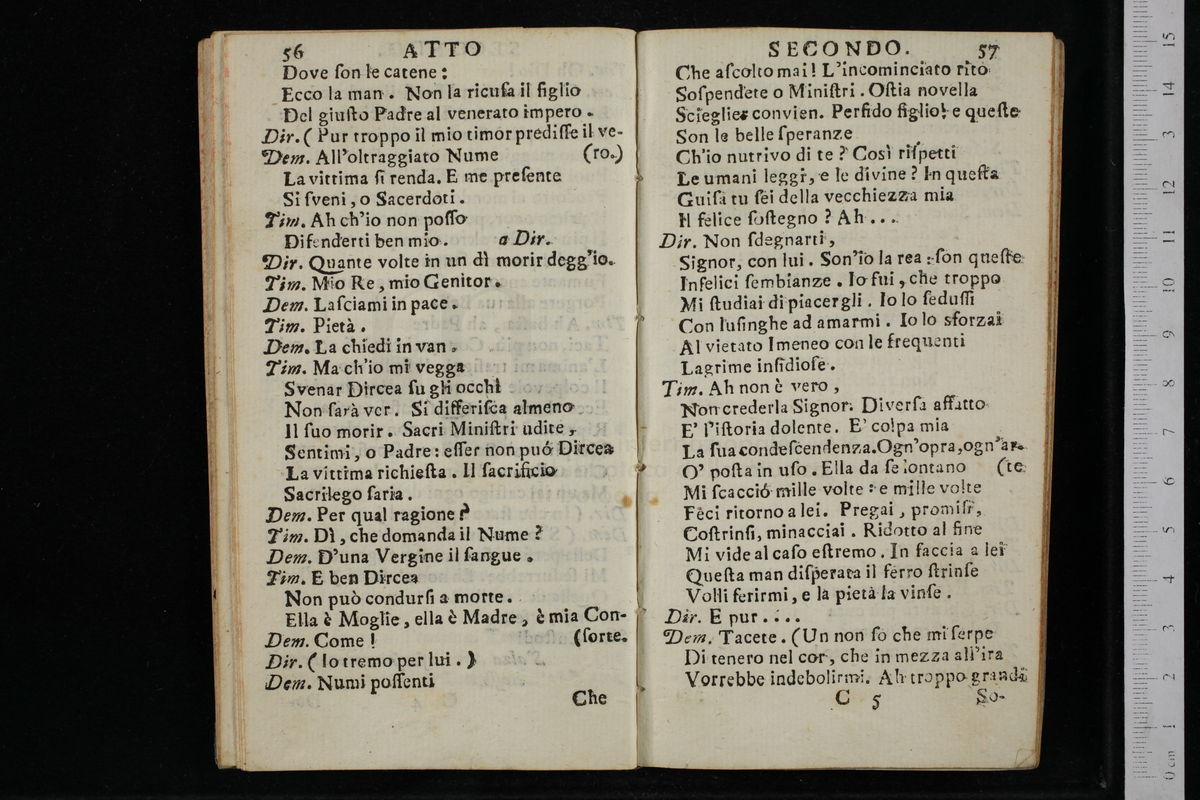 56 ATTO
Dove ſon le catene:
Ecco la man. Non la ricuſa il figlio
Del giuſto Padre al venerato impero.
Dir. (Pur troppo il mio timor prediſſe il ve-
Dem. All'oltraggiato Nume (ro.)
La vittima ſi renda. E me preſente
Si ſveni, o Sacerdoti.
Tim. Ah ch'io non poſſo
Difenderti ben mio. a Dir.
Dir. Quante volte in un dì morir degg'io.
Tim. Mio Re, mio Genitor.
Dem. Laſciami in pace.
Tim. Pietà.
Dem. La chiedi in van.
Tim. Ma ch'io mi vegga
Svenar Dircea ſu gli occhi
Non ſarà ver. Si differiſca almeno
Il ſuo morir. Sacri Miniſtri udite,
Sentimi, o Padre: eſſer non puó Dircea
La vittima richieſta. Il ſacrificio
Sacrilego ſaria.
Dem. Per qual ragione?
Tim. Dì, che domanda il Nume?
Dem. D'una Vergine il ſangue.
Tim. E ben Dircea
Non può condurſi a morte.
Ella è Moglie, ella è Madre, è mia Con-
Dem. Come! (ſorte.
Dir. (Io tremo per lui.)
Dem. Numi poſſenti
Che
SECONDO. 57
Che aſcolto mai! L'incominciato rito
Soſpendete o Miniſtri. Oſtia novella
Scieglier convien. Perfido figlio! e queſte
Son le belle ſperanze
Ch'io nutrivo di te? Così riſpetti
Le umani leggi, e le divine? In queſta
Guiſa tu ſei della vecchiezza mia
Il felice ſoſtegno? Ah...
Dir. Non ſdegnarti,
Signor, con lui. Son'io la rea: ſon queſte
Infelici ſembianze. Io fui, che troppo
Mi ſtudiai di piacergli. Io lo ſeduſſi
Con luſinghe ad amarmi. Io lo sforzai
Al vietato Imeneo con le frequenti
Lagrime inſidioſe.
Tim. Ah non è vero,
Non crederla Signor. Diverſa affatto
E' l'iſtoria dolente. E' colpa mia
La ſua condeſcendenza. Ogn'opra, ogn'ar-
O' poſta in uſo. Ella da ſe lontano (te
Mi ſcacció mille volte: e mille volte
Fèci ritorno a lei. Pregai, promiſi,
Coſtrinſi, minacciai. Ridotto al fine
Mi vide al caſo eſtremo. In faccia a lei
Queſta man diſperata il ferro ſtrinſe
Volli ferirmi, e la pietà la vinſe.
Dir. E pur....
Dem. Tacete. (Un non ſo che mi ſerpe
Di tenero nel cor, che in mezza all'ira
Vorrebbe indebolirmi. Ah troppo grandi
C 5 So-
0 cm 1 2 3 4 5 6 7 8 9 10 11 12 13 14 15